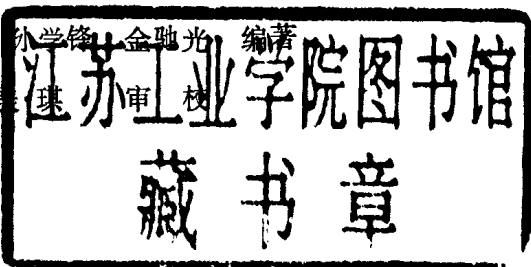 孙学锋 金驰光 编著
琪 审校
江苏工业学院图书馆
藏书章